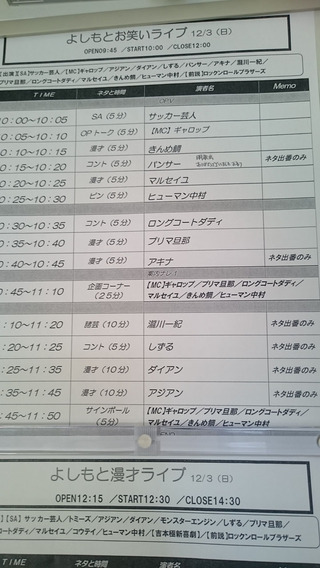 よしもとお笑いライブ 12/3（日）
OPEN09:45 ／START10:00 ／CLOSE12:00
【出演】【SA】サッカー芸人／【MC】ギャロップ／アジアン／ダイアン／しずる／パンサー／アキナ／瀧川一紀／
プリマ旦那／ロングコートダディ／マルセイユ／きんめ鯛／ヒューマン中村／【前説】ロックンロールブラザーズ
TIME ネタと時間 演者名 Memo
0:00～10:05 SA（5分） サッカー芸人
0:05～10:10 OPトーク（5分） 【MC】ギャロップ
0:10～10:15 漫才（5分） きんめ鯛
0:15～10:20 コント（5分） パンサー ネタ出番のみ
0:20～10:25 漫才（5分） マルセイユ
0:25～10:30 ピン（5分） ヒューマン中村
0:30～10:35 コント（5分） ロングコートダディ
0:35～10:40 漫才（5分） プリマ旦那
0:40～10:45 漫才（5分） アキナ ネタ出番のみ
0:45～11:10 企画コーナー（25分） 【MC】ギャロップ／プリマ旦那／ロングコートダディ／
マルセイユ／きんめ鯛／ヒューマン中村
1:10～11:20 諸芸（10分） 瀧川一紀 ネタ出番のみ
1:20～11:25 コント（5分） しずる ネタ出番のみ
1:25～11:35 漫才（10分） ダイアン ネタ出番のみ
1:35～11:45 漫才（10分） アジアン ネタ出番のみ
1:45～11:50 サインボール（5分） 【MC】ギャロップ／プリマ旦那／ロングコートダディ／
マルセイユ／きんめ鯛／ヒューマン中村
よしもと漫才ライブ 12/3（日）
OPEN12:15 ／START12:30 ／CLOSE14:30
【SA】サッカー芸人／トミーズ／アジアン／ダイアン／モンスターエンジン／しずる／プリマ旦那／
ートダディ／マルセイユ／コウテイ／ヒューマン中村／【吉本極新喜劇】／【前説】ロックンロールブラザーズ
TIME ネタと時間 演者名 Memo